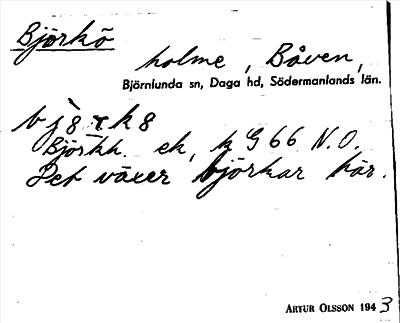 Björkö
holme, Båven,
Björnlunda sn, Daga hd, Södermanlands län.
Björkh. ek, k G 66 N.O.
Det växer björkar här.
ARTUR OLSSON 1943